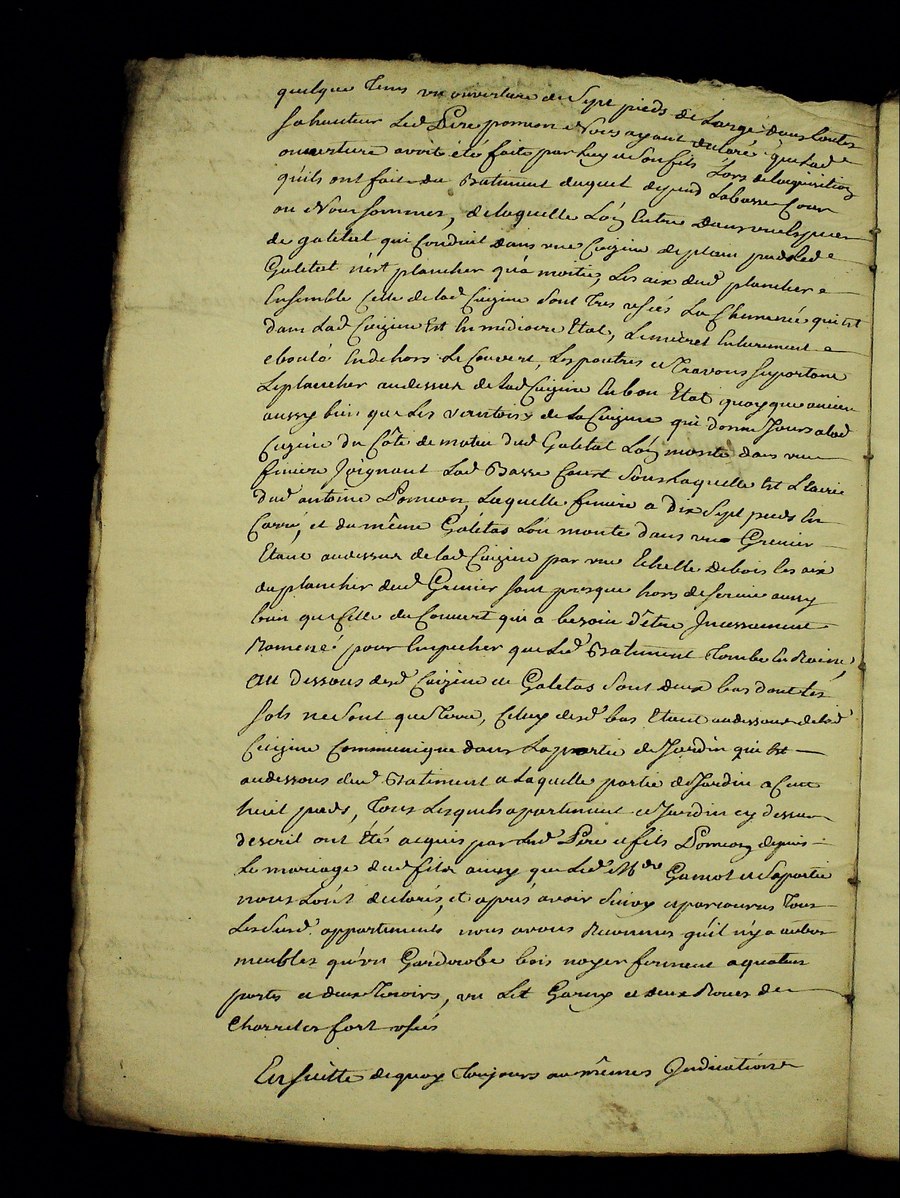 quelque Tems un ouverture de Sept pieds de Large dans toutte
Sa hauteur Led. Pere pomeon Nous ayant declaré que lad.
ouverture avoit été faite par Luy et Son fils Lors de laquisition
quils ont fait du Batiment duquel depend La basse Cour
ou Nous Sommes, de laquelle L'on Entre dans une Espece
de galetat qui Conduit dans une Cuizine de plain pied Led.
Galetat n'est plancher qu'a moitie, Les aix dud. plancher
Ensemble Celle de lad. Cuizine Sont Tres usés La Cheminée qui est
dans Lad. Cuizine Est En mediocre Etat, Entierement
eboulé En dehors Le Couvert, Les poutres et Travons Suportant
Le plancher audessus de lad. Cuizine En bon Etat quoyque ancien
aussy bien que Les de La Cuizine qui donne Jours a lad.
Cuzine du Côté de matin dud. Galetat L'on monte dans une
finiere Joignant Lad. Basse Court Sous Laquelle Est L'Ecurie
dud. antoine Pomeon, Laquelle finiere a dix Sept pieds En
Carré, et du même Galetas L'on monte dans une Grenier
Etant audessus de lad. Cuizine par une Echelle de bois les aix
du plancher dud. Grenier Sont presque hors de Service aussy
bien que Celle du Couvert qui a besoin d'être Jncessament
Ramené pour Empecher que Led. Batiment Tombe En Ruine,
au dessous desd. Cuizine et Galetas Sont deux bas dont les
Sols ne Sont que Terre, Celuy desd. bas Etant audessous de lad.
Cuizine Communique dans La partie de Jardin qui Est
audessous dud. Batiment a Laquelle partie de Jardin a Cent
huit pieds, Tous Lesquels apartement et Jardin cy dessus
descrit ont Eté acquis par lesd. Pere et fils Pomeon depuis
Le mariage dud. fils ainsy que Led. Me. Gamot et Sa partie
nous L'ont declarés, et aprés avoir Suivy et parcourus Tous
Les Susd. appartements nous avons Reconnus qu'il n'y a autres
meubles qu'un Garderobe bois noyer fermant a quatres
portes et deux Tiroirs, un Lit Garny et deux Roues de
Charrettes fort usés
Ensuitte de quoy Toujours au mêmes Jndications